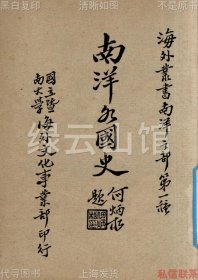 黑白复印
清晰如图
海外叢書南洋之部 第一種
南洋各國史
何炳松題
國立暨南大學
海外文化事業部印行
缘云山馆
私信联系
代寻图书
上海发货